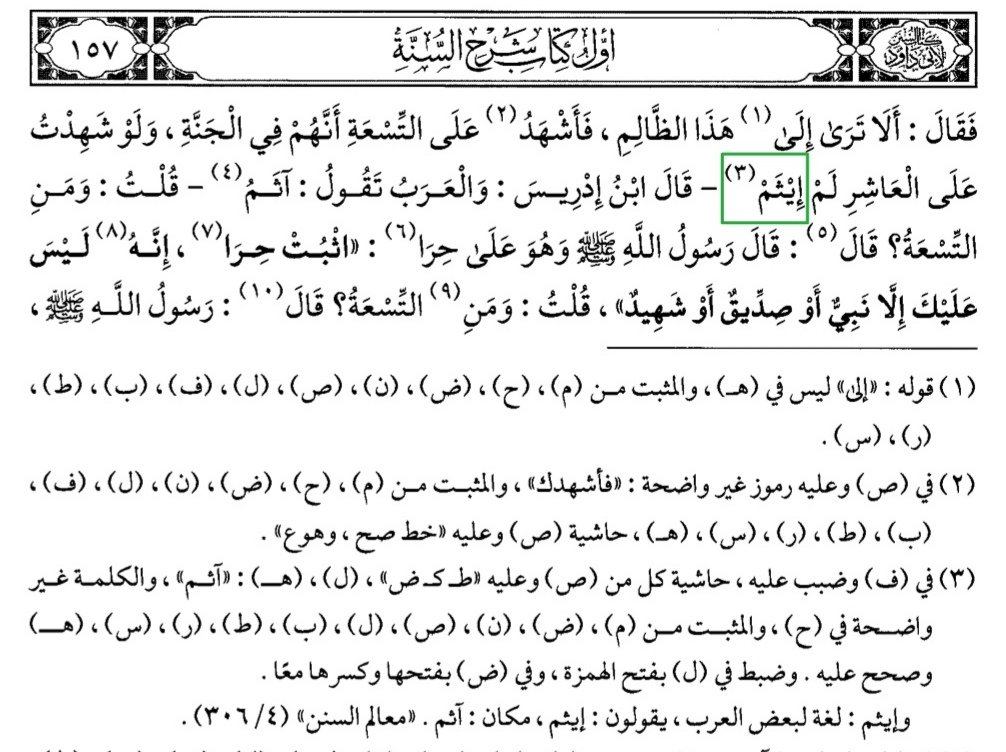 كتاب السنن لأبي داود
أول كتاب شرح السنة
١٥٧
فَقَالَ : أَلَا تَرَىٰ إِلَىٰ(١) هَذَا الظَّالِمِ ، فَأَشْهَدُ(٢) عَلَى التِّسْعَةِ أَنَّهُمْ فِي الْجَنَّةِ ، وَلَوْ شَهِدْتُ
عَلَى الْعَاشِرِ لَمْ إِيْثَمْ(٣) - قَالَ ابْنُ إِدْرِيسَ : وَالْعَرَبُ تَقُولُ : آثَمُ(٤) - قُلْتُ : وَمَنِ
التِّسْعَةُ؟ قَالَ(٥) : قَالَ رَسُولُ اللَّهِ ﷺ وَهُوَ عَلَىٰ حِرَا(٦) : «اثْبُتْ حِرَا(٧) ، إِنَّهُ(٨) لَيْسَ
عَلَيْكَ إِلَّا نَبِيٌّ أَوْ صِدِّيقٌ أَوْ شَهِيدٌ» ، قُلْتُ : وَمَنِ(٩) التِّسْعَةُ؟ قَالَ(١٠) : رَسُولُ اللَّهِ ﷺ ،
(١) قوله : «إلى» ليس في (هـ) ، والمثبت من (م) ، (ح) ، (ض) ، (ن) ، (ص) ، (ل) ، (ف) ، (ب) ، (ط) ،
(ر) ، (س) .
(٢) في (ص) وعليه رموز غير واضحة : «فأشهدك» ، والمثبت من (م) ، (ح) ، (ض) ، (ن) ، (ل) ، (ف) ،
(ب) ، (ط) ، (ر) ، (س) ، (هـ) ، حاشية (ص) وعليه «خط صح ، وهوع» .
(٣) في (ف) وضبب عليه ، حاشية كل من (ص) وعليه «طـ كـ ض» ، (ل) ، (هـ) : «آثم» ، والكلمة غير
واضحة في (ح) ، والمثبت من (م) ، (ض) ، (ن) ، (ص) ، (ل) ، (ب) ، (ط) ، (ر) ، (س) ، (هـ)
وصحح عليه . وضبط في (ل) بفتح الهمزة ، وفي (ض) بفتحها وكسرها معًا .
وإيثم : لغة لبعض العرب ، يقولون : إيثم ، مكان : آثم . «معالم السنن» (٤/ ٣٠٦) .